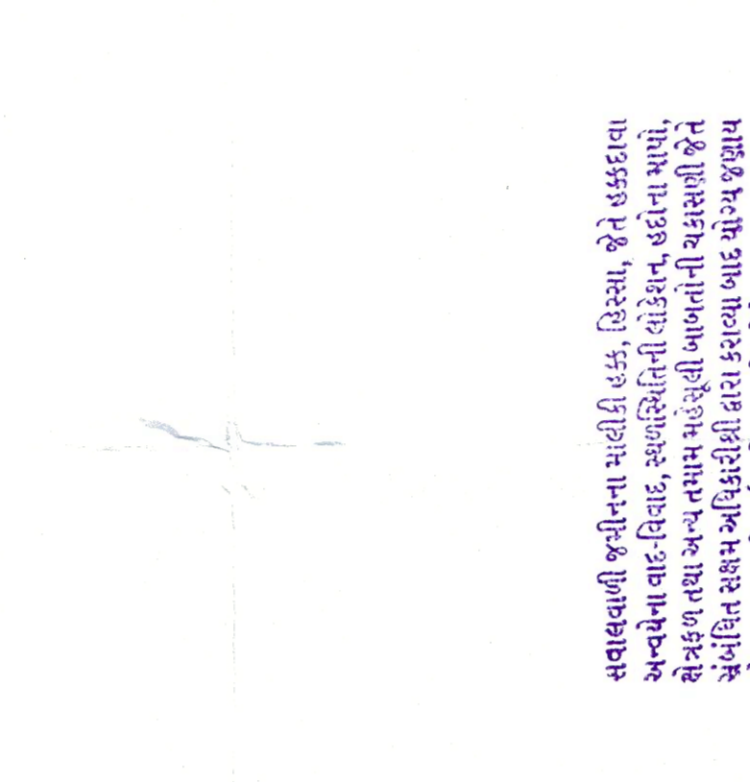 સવાલવાળી જમીનના માલીકી હક્ક, હિસ્સા, જેને હક્કદાવા
અન્વયેના વાદ-વિવાદ, સ્થળસ્થિતિની લોકેશન, હદોના માપો,
ક્ષેત્રફળ તથા અન્ય તમામ મહેસૂલી બાબતોની ચકાસણી જેને
સંબંધિત સક્ષમ અધિકારીશ્રી દ્વારા કરાવ્યા બાદ યોગ્ય જણાય